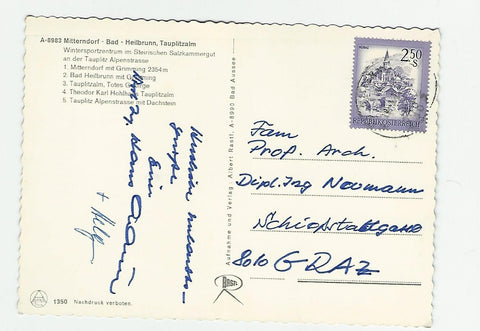 A-8983 Mitterndorf - Bad - Heilbrunn, Tauplitzalm
Wintersportzentrum im Steirischen Salzkammergut
an der Tauplitz Alpenstrasse
1. Mitterndorf mit Grimming 2354m
2. Bad Heilbrunn mit Grimming
3. Tauplitzalm, Totes Gebirge
4. Theodor Karl Holl Tauplitzalm
5. Tauplitz Alpenstrasse mit Dachstein
Herzliche Urlaubs-
grüße
Eure
Hans
+ Helga
1350 Nachdruck verboten.
Aufnahme und Verlag Albert Rastl, A-8990 Bad Aussee
RASTL
2.50
S
REPUBLIK ÖSTERREICH
Fam
Prop. Arch.
Dipl. Ing Neumann
Schießstattgasse
8010 GRAZ